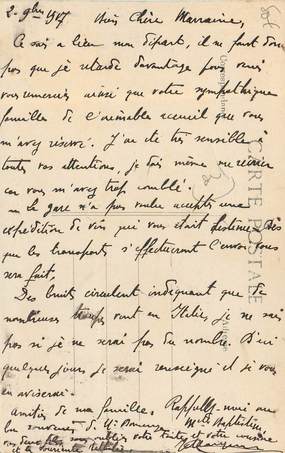 2. 9bre 1917 Chère Marraine,
Ce soir a lieu mon départ, il ne faut donc
pas que je retarde davantage pour vous
remercier ainsi que votre sympathique
famille de l'aimable accueil que vous
m'avez réservé. J'ai été très sensible à
toutes vos attentions, je dois même me récrier
car vous m'avez trop comblé.
la gare n'a pas voulu accepter une
expédition de vin qui vous était destinée. Dès
que les transports s'effectueront l'envoi vous
sera fait.
Des bruits circulent indiquant que de
nombreuses troupes vont en Italie, je ne sais
pas si je ne serai pas du nombre. D'ici
quelques jours je serai renseigné et je vous
en aviserai.
amitiés de ma famille. Rappelez-moi au
bon souvenir de Mr
votre tante et votre cousine
CARTE POSTALE
Correspondance